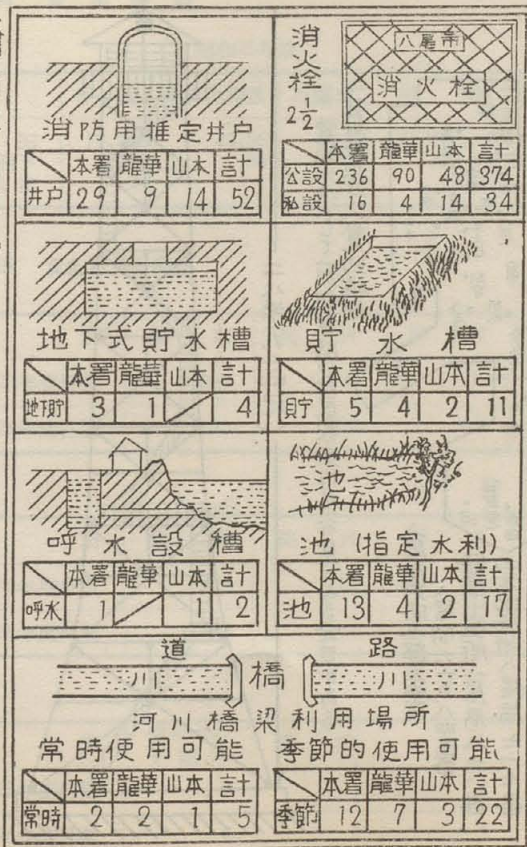 消防用推定井戸
本署 龍華 山本 言十
井戸 29 9 14 52
消火栓 2½
八尾市
消火栓
本署 龍華 山本 言十
公設 236 90 48 374
私設 16 4 14 34
地下式貯水槽
本署 龍華 山本 言十
地下貯 3 1 / 4
貯水槽
本署 龍華 山本 言十
貯 5 4 2 11
呼水設槽
本署 龍華 山本 言十
呼水 1 / 1 2
池
池 (指定水利)
本署 龍華 山本 言十
池 13 4 2 17
道 路
川 橋 川
河川橋梁利用場所
常時使用可能
本署 龍華 山本 言十
常時 2 2 1 5
季節的使用可能
本署 龍華 山本 言十
季節 12 7 3 22